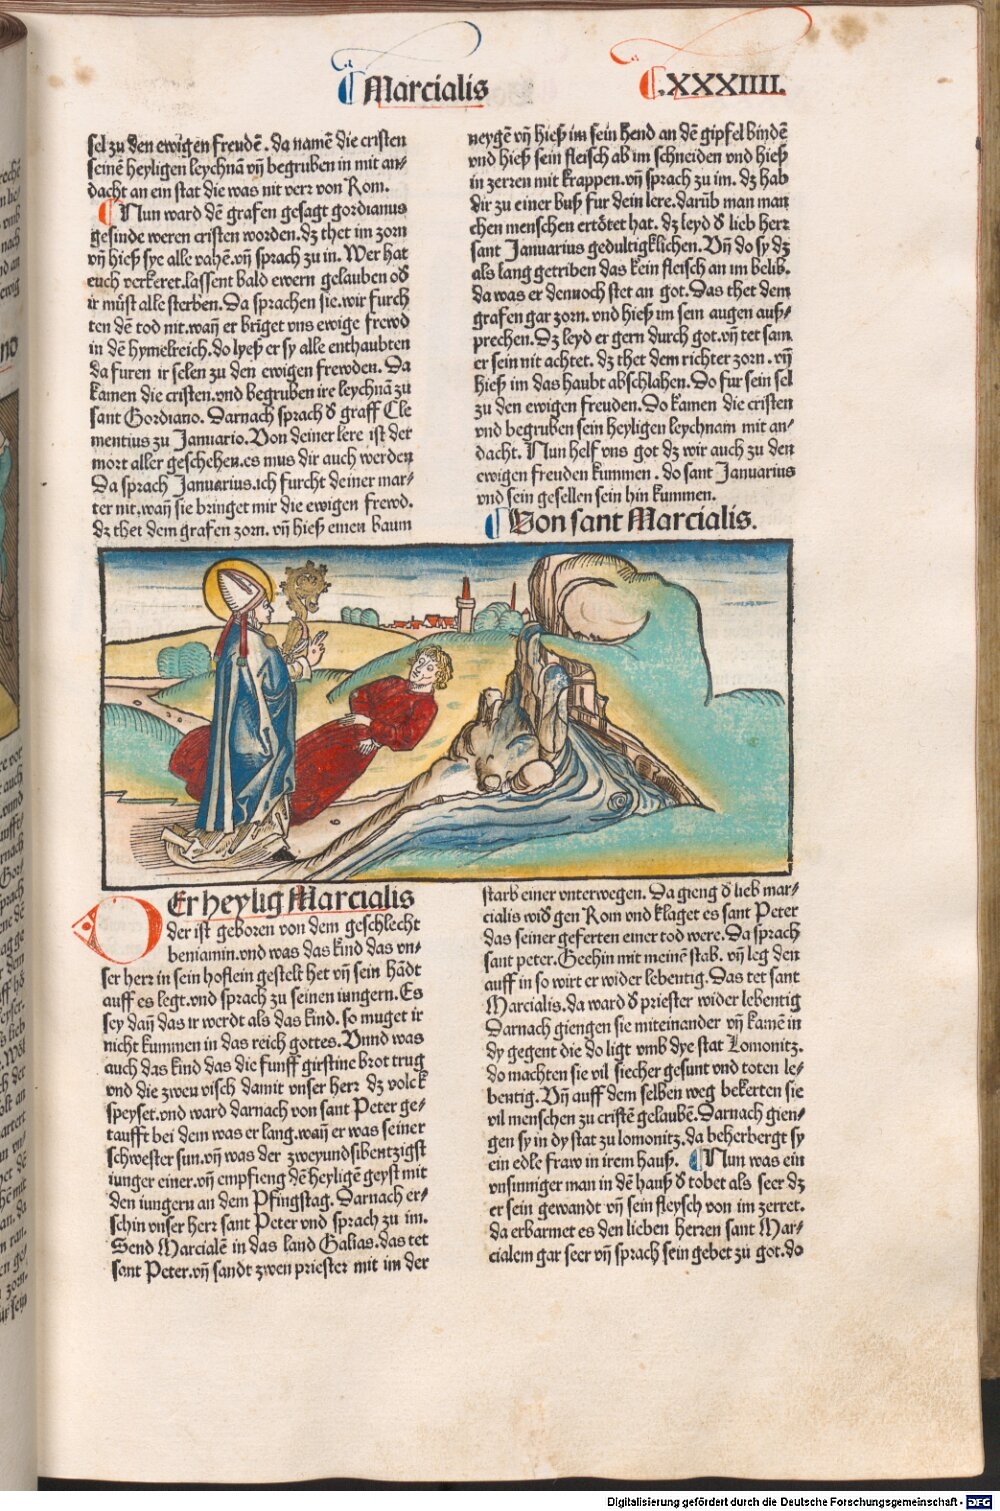 Marcialis
.XXXIIII.
sel zu den ewigen freudē. da namē die cristen
seinē heyligen leychnā vn̄ begruben in mit an⸗
dacht an ein stat die was nit verr von Rom.
Nun ward dē grafen gesagt gordianus
gesinde weren cristen worden. dz thet im zorn
vn̄ hieß sye alle vahē. vn̄ sprach zu in. Wer hat
euch verkeret. lassent bald ewern gelauben od̄
ir mu͂st alle sterben. Da sprachen sie. wir furch
ten dē tod nit. wan̄ er bringet vns ewige frewd
in dē hymelreich. do lyeß er sy alle enthaubten
da furen ir selen zu den ewigen frewden. Da
kamen die cristen. vnd begruben ire leychnā zu
sant Gordiano. Darnach sprach d̄ graff Cle
mentius zu Januario. Von deiner lere ist der
mort aller geschehen. es mus dir auch werden
Da sprach Januarius. ich furcht deiner mar⸗
ter nit. wan̄ sie bringet mir die ewigen frewd.
dz thet dem grafen zorn. vn̄ hieß einen baum
neygē vn̄ hieß im sein hend an dē gipfel bindē
vnd hieß sein fleisch ab im schneiden vnd hieß
in zerren mit krappen. vn̄ sprach zu im. dz hab
dir zu einer buß fur dein lere. darūb man man
chen menschen ertötet hat. dz leyd d̄ lieb herr
sant Januarius gedultigklichen. Vn̄ do sy dz
als lang getriben das kein fleisch an im belib.
da was er dennoch stet an got. Das thet dem
grafen gar zorn. vnd hieß im sein augen auß⸗
prechen. Dz leyd er gern durch got. vn̄ tet sam
er sein nit achtet. dz thet dem richter zorn. vn̄
hieß im das haubt abschlahen. Do fur sein sel
zu den ewigen freuden. Do kamen die cristen
vnd begruben sein heyligen leychnam mit an⸗
dacht. Nun helf vns got dz wir auch zu den
ewigen freuden kummen. do sant Januarius
vnd sein gesellen sein hin kummen.
Von sant Marcialis.
DEr heylig Marcialis
der ist geboren von dem geschlecht
beniamin. vnd was das kind das vn⸗
ser herr in sein hoflein gestelt het vn̄ sein hādt
auff es legt. vnd sprach zu seinen iungern. Es
sey dan̄ das ir werdt als das kind. so muget ir
nicht kummen in das reich gottes. Vnnd was
auch das kind das die funff girstine brot trug
vnd die zwen visch damit vnser herr dz volck
speyset. vnd ward darnach von sant Peter ge⸗
taufft bei dem was er lang. wan̄ er was seiner
schwester sun. vn̄ was der zweyundsibentzigst
iunger einer. vn̄ empfieng dē heyligē geyst mit
den iungern an dem Pfingstag. Darnach er⸗
schin vnser herr sant Peter vnd sprach zu im.
Send Marcialē in das land Galias. das tet
sant Peter. vn̄ sandt zwen priester mit im der
starb einer vnterwegen. Da gieng d̄ lieb mar⸗
cialis wid̄ gen Rom vnd klaget es sant Peter
das seiner geferten einer tod were. Da sprach
sant peter. Geehin mit meinē stab. vn̄ leg den
auff in so wirt er wider lebentig. Das tet sant
Marcialis. da ward d̄ priester wider lebentig
Darnach giengen sie miteinander vn̄ kamē in
dy gegent die do ligt vmb dye stat Lomonitz.
do machten sie vil siecher gesunt vnd toten le⸗
bentig. Vn̄ auff dem selben weg bekerten sie
vil menschen zu cristē gelaubē. Darnach gien⸗
gen sy in dy stat zu lomonitz. da beherbergt sy
ein edle fraw in irem hauß. Nun was ein
vnsinniger man in dē hauß d̄ tobet als seer dz
er sein gewandt vn̄ sein fleysch von im zerret.
da erbarmet es den lieben herren sant Mar⸗
cialem gar seer vn̄ sprach sein gebet zu got. do
Digitalisierung gefördert durch die Deutsche Forschungsgemeinschaft - DFG